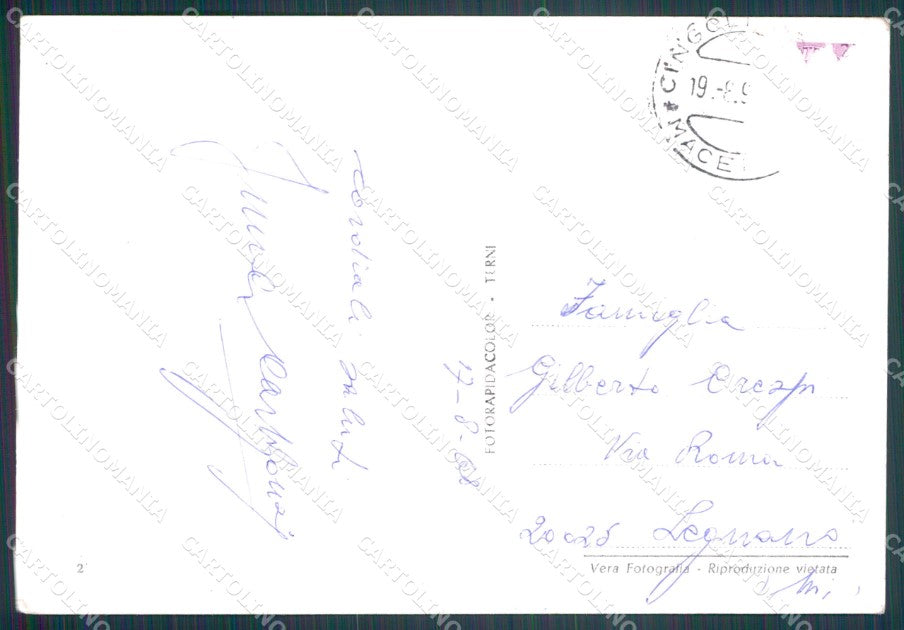 CINGO
19.-8.9
MACE
Cordiali
saluti
17-8-98
FOTORAPIDACOLOR - TERNI
Famiglia
Gilberto Crespi
Via Roma
20025 Legnano
Mi,
2
Vera Fotografia - Riproduzione vietata
CARTOLINOMANIA